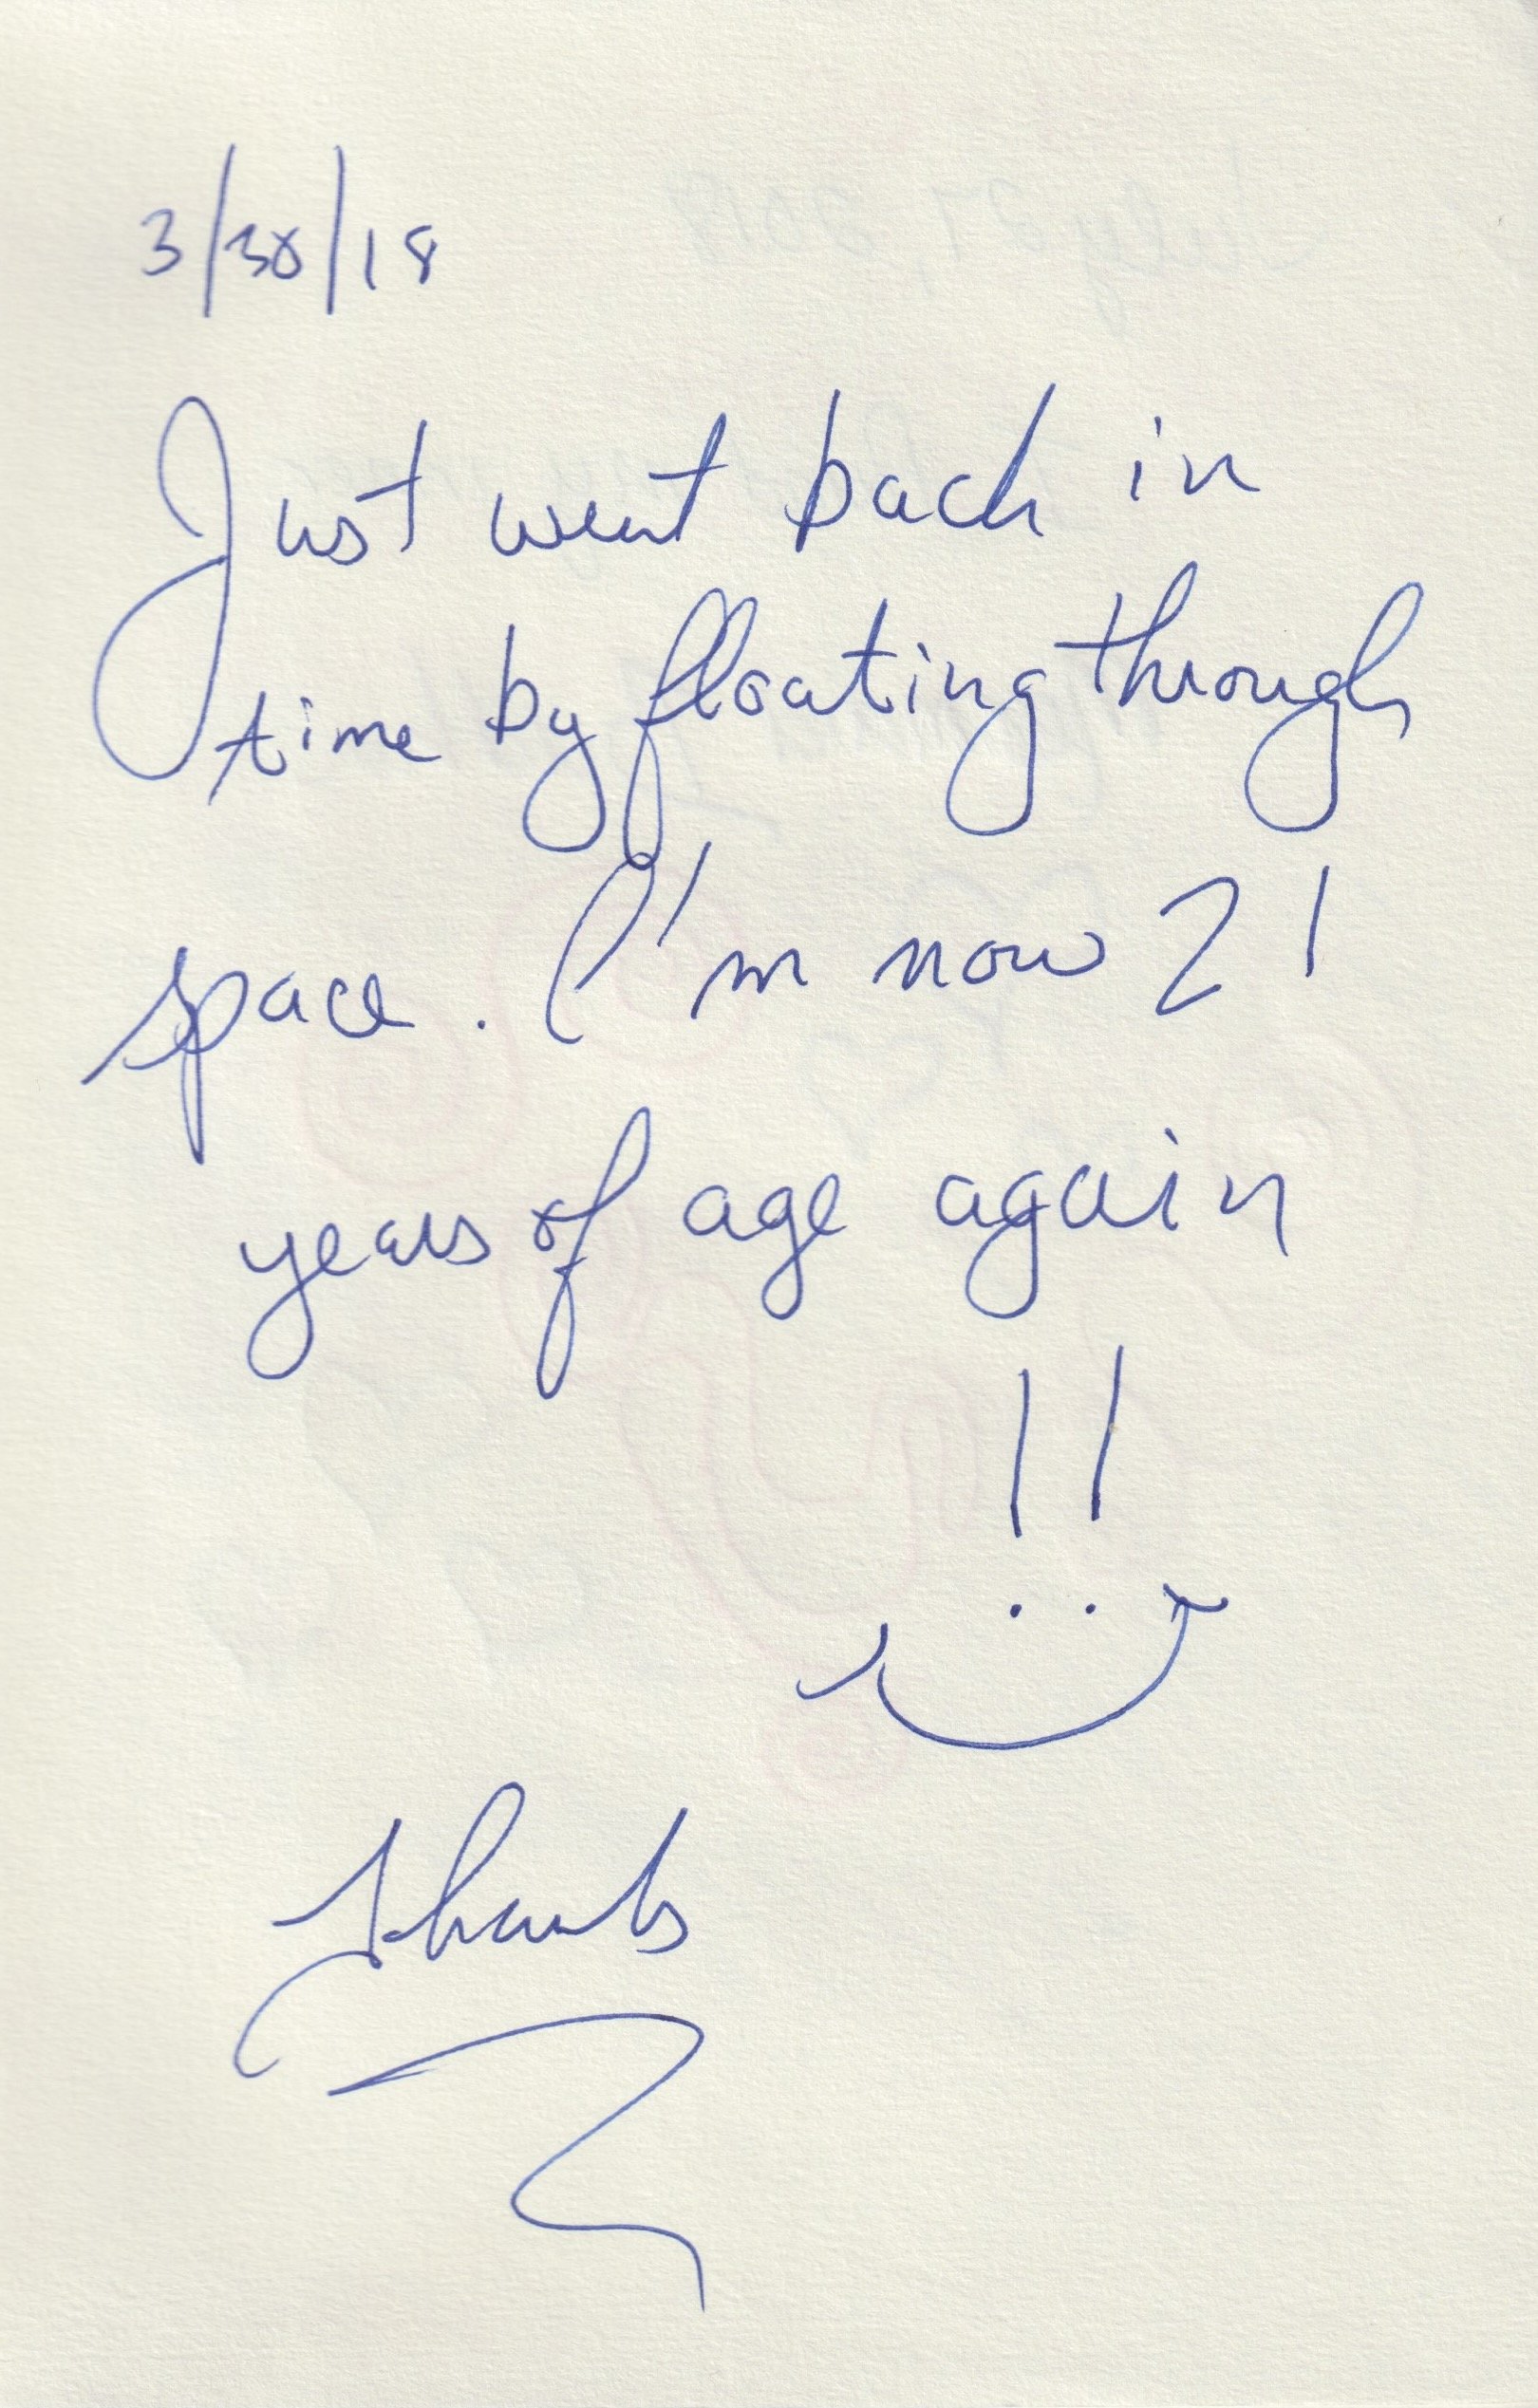 3/30/18
Just went back in
time by floating through
space. I'm now 21
years of age again
!!
Thanks